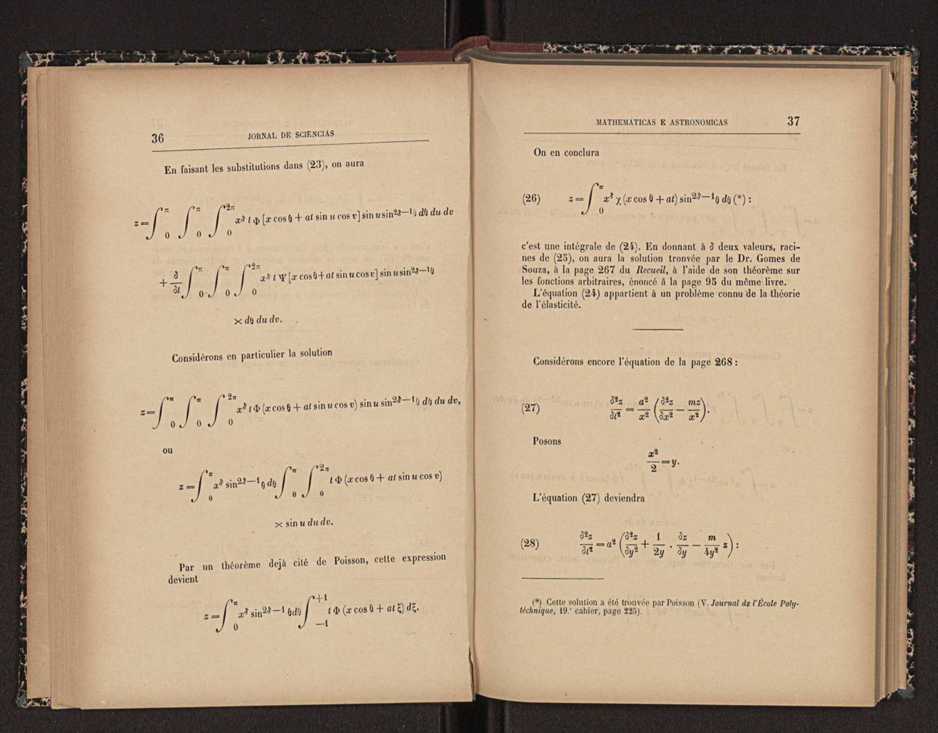 36 JORNAL DE SCIENCIAS
En faisant les substitutions dans (23), on aura
z = ∫₀^π ∫₀^π ∫₀^2π x^∂ t Φ [x cos η + at sin u cos v] sin u sin^{2∂—1} η dη du dv
+ ∂/∂t ∫₀^π ∫₀^π ∫₀^2π x^∂ t Ψ [x cos η + at sin u cos v] sin u sin^{2∂—1} η
× dη du dv.
Considérons en particulier la solution
z = ∫₀^π ∫₀^π ∫₀^2π x^∂ t Φ (x cos η + at sin u cos v) sin u sin^{2∂—1} η dη du dv,
ou
z = ∫₀^π x^∂ sin^{2∂—1} η dη ∫₀^π ∫₀^2π t Φ (x cos η + at sin u cos v)
× sin u du dv.
Par un théorème dejà cité de Poisson, cette expression
devient
z = ∫₀^π x^∂ sin^{2∂—1} η dη ∫_{—1}^{+1} t Φ (x cos η + at ξ) dξ.
MATHEMATICAS E ASTRONOMICAS 37
On en conclura
(26) z = ∫₀^π x^∂ χ (x cos η + at) sin^{2∂—1} η dη (*) :
c'est une intégrale de (24). En donnant à ∂ deux valeurs, raci-
nes de (25), on aura la solution trouvée par le Dr. Gomes de
Souza, à la page 267 du Recueil, à l'aide de son théorème sur
les fonctions arbitraires, énoncé á la page 95 du même livre.
L'équation (24) appartient à un problème connu de la théorie
de l'élasticité.
Considérons encore l'équation de la page 268 :
(27) ∂²z/∂t² = a²/x² (∂²z/∂x² — mz/x²).
Posons
x²/2 = y.
L'équation (27) deviendra
(28) ∂²z/∂t² = a² (∂²z/∂y² + 1/2y . ∂z/∂y — m/4y² z) :
(*) Cette solution a été trouvée par Poisson (V. Journal de l'École Poly-
téchnique, 19.e cahier, page 225).